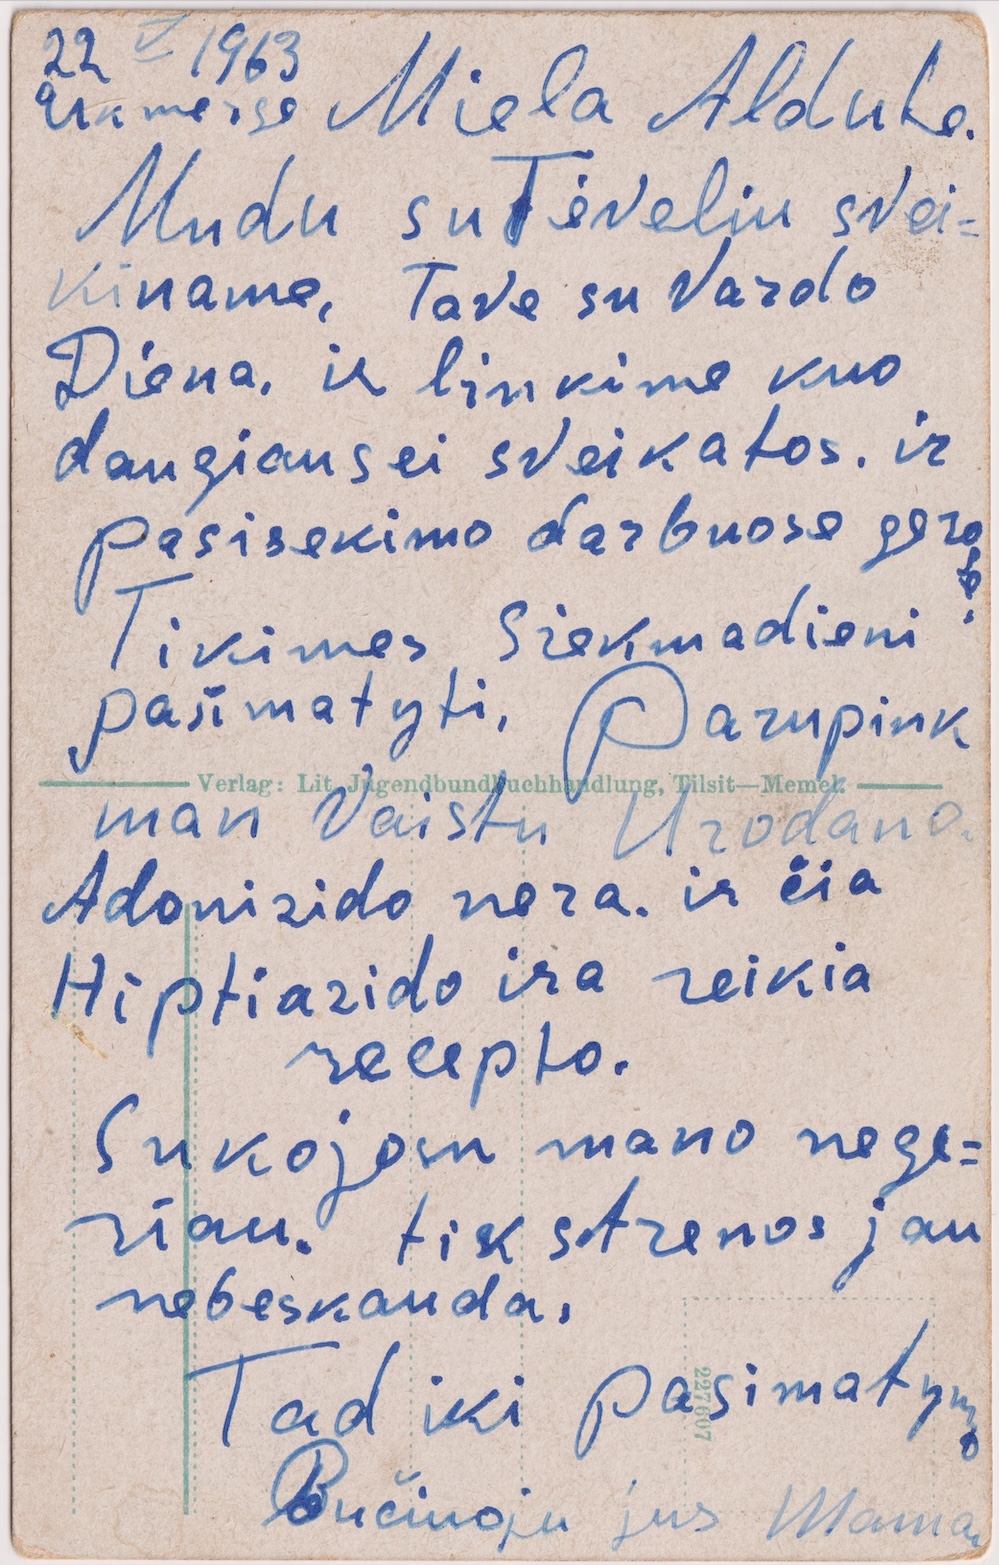 22 V 1963
Ukmerge Miela Aldute.
Mudu su Tėveliu svei=
kiname, Tave su Vardo
Diena. ir linkime kuo
daugiausei sveikatos. ir
pasisekimo darbuose gero
Tikimes Siekmadieni
pasimatyti. Parupink
Verlag: Lit. Jugendbundbuchhandlung, Tilsit—Memel.
man Vaistu Urodano.
Adonizido nera. ir čia
Hiptiazido ira reikia
recepto.
Su kojosu mano nege=
riau. tik strenos jau
nebeskauda.
Tad iki pasimatymo
227607
Bučiuoju jus Mama.